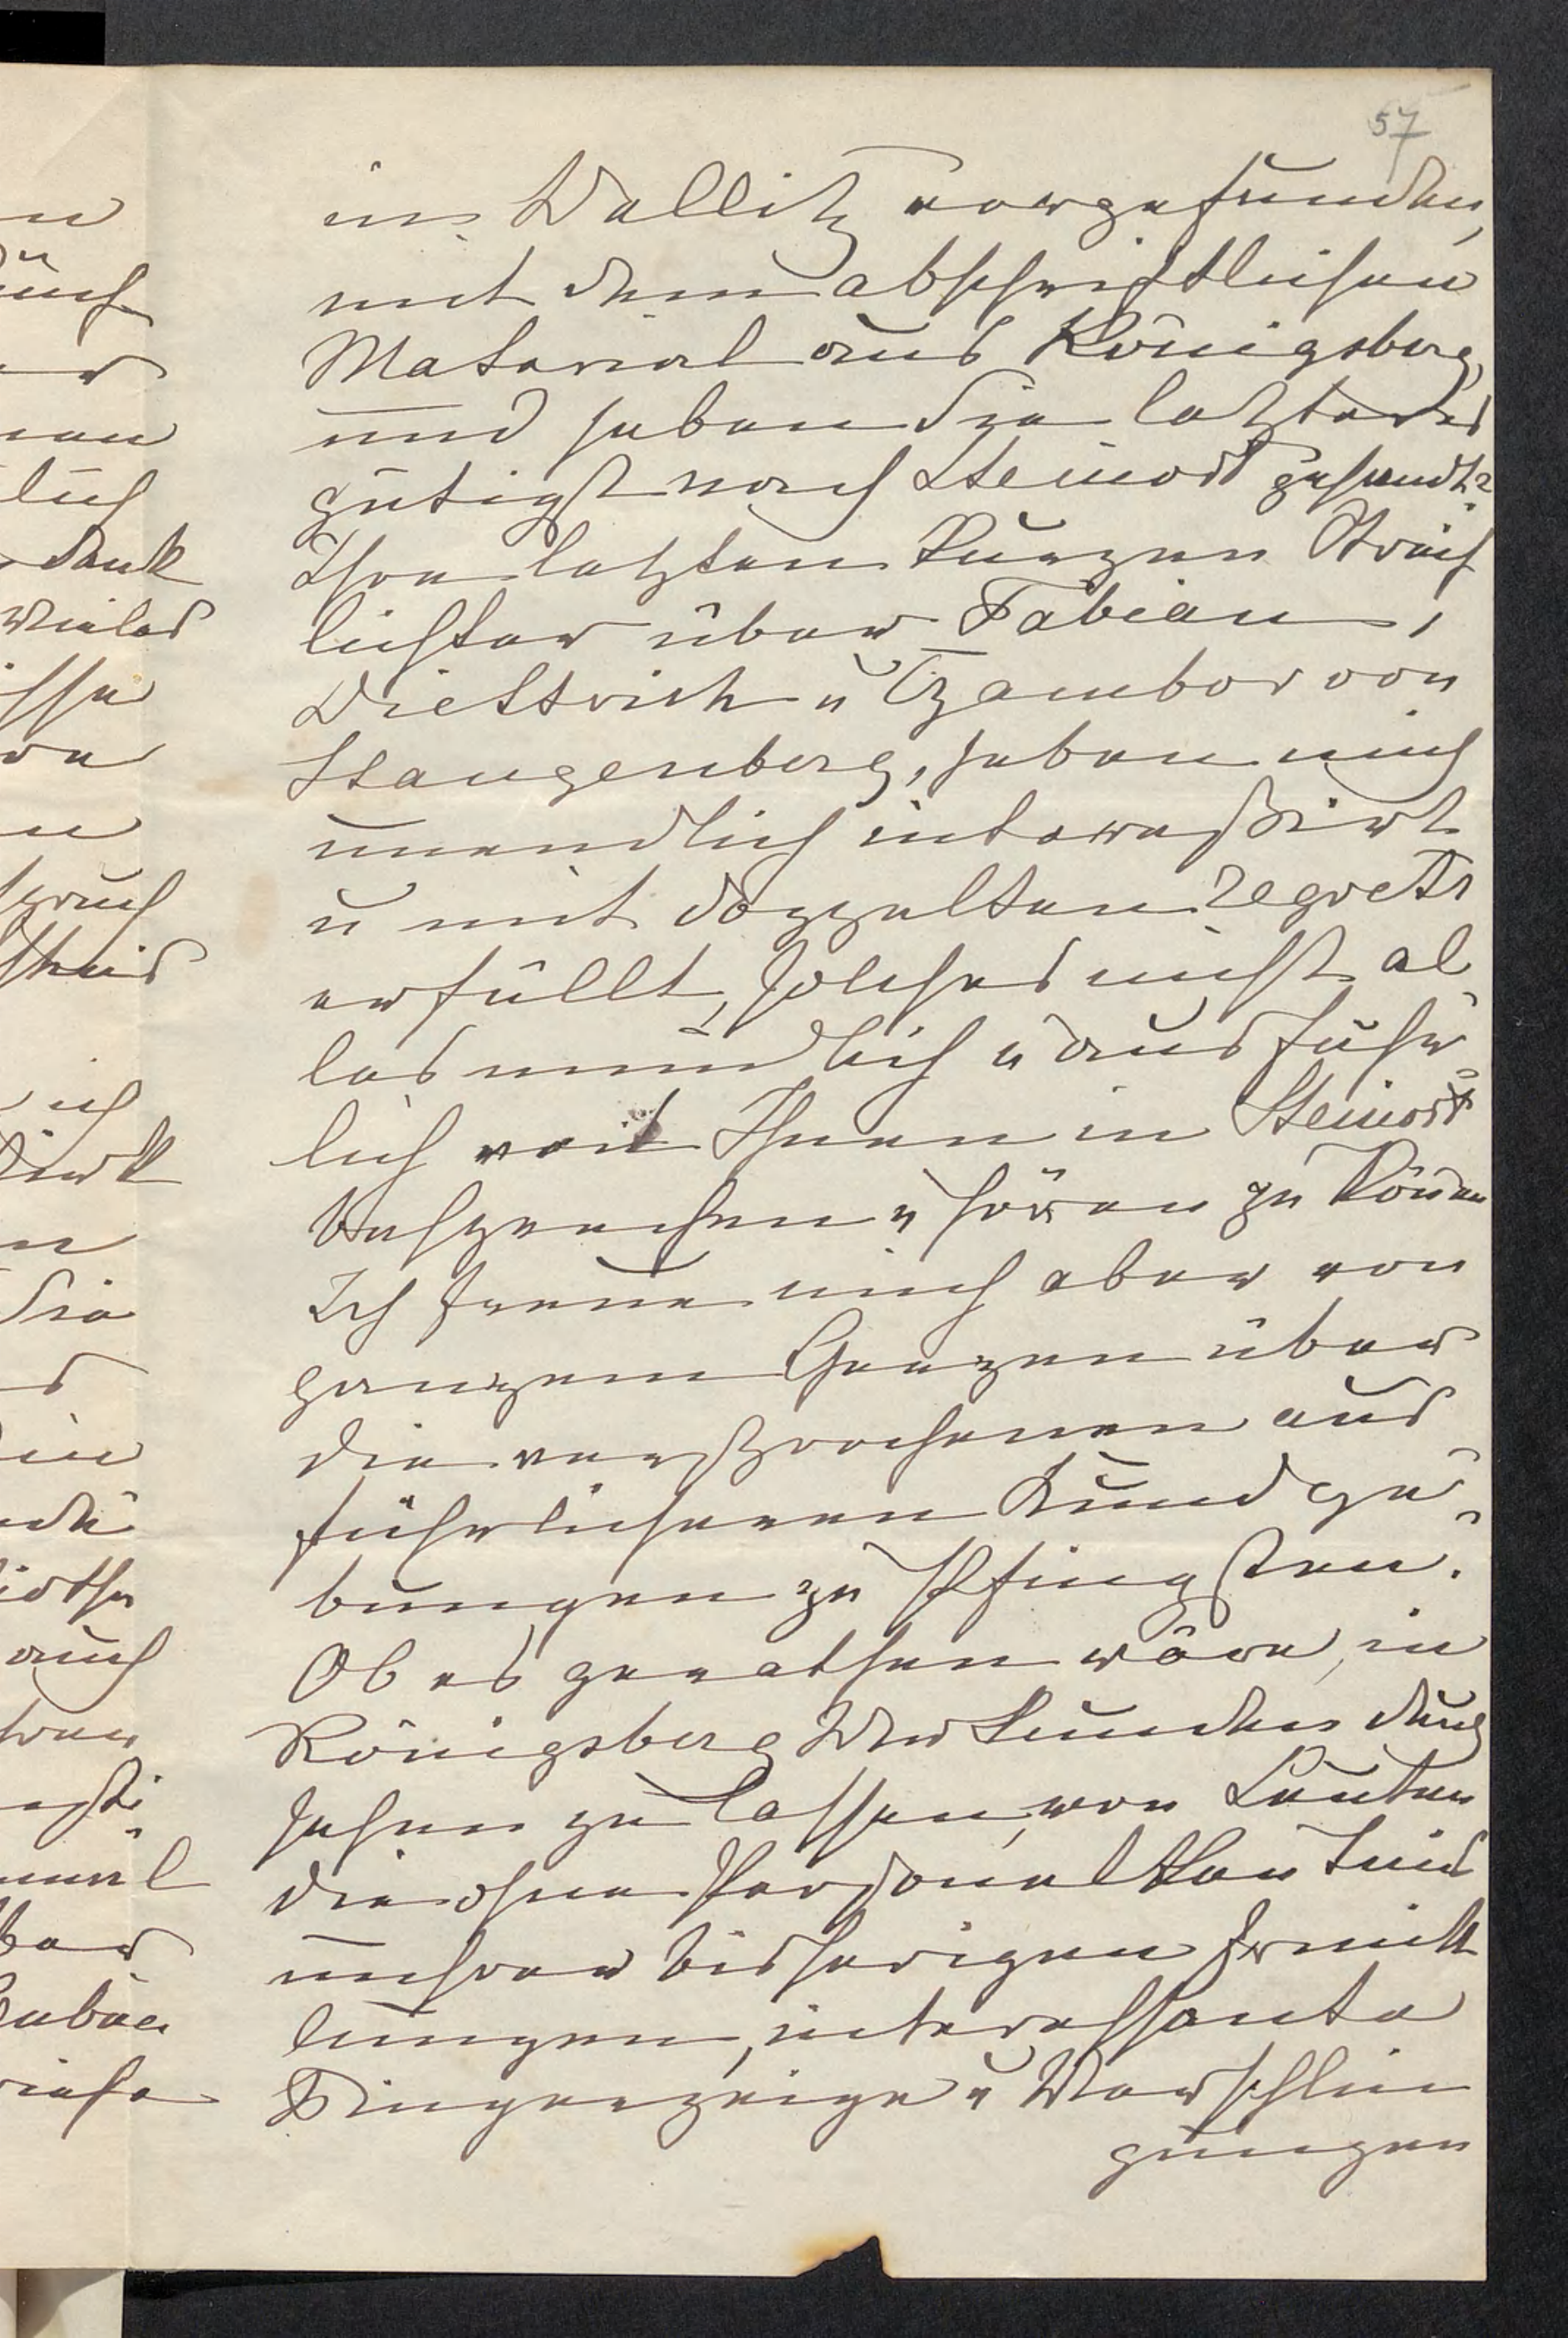 57
in Wallitz vorgefunden,
mit dem abschriftlichen
Material aus Königsberg,
und haben Sie letzteres
gütigst nach Steinort gesandt?
Ihre letzten kurzen Streif
lichter über Fabian,
Diettrich u Czambor von
Stangenberg, haben mich
unendlich interessirt
u mit doppelten regrets
erfüllt, solches nicht al
les mündlich u ausführ
lich mit Ihnen in Steinort
besprechen u hören zu können
Ich freue mich aber von
ganzem Herzen über
die versprochenen aus
führlicheren Kundge-
bungen zu Pfingsten.
Ob es gerathen wäre, in
Königsberg Urkunden durch
sehen zu lassen, von Leuten
die ohne Personalkenntniß
unserer bisherigen Ermitt
lungen, interessante
Fingerzeige u Verschlin
gungen